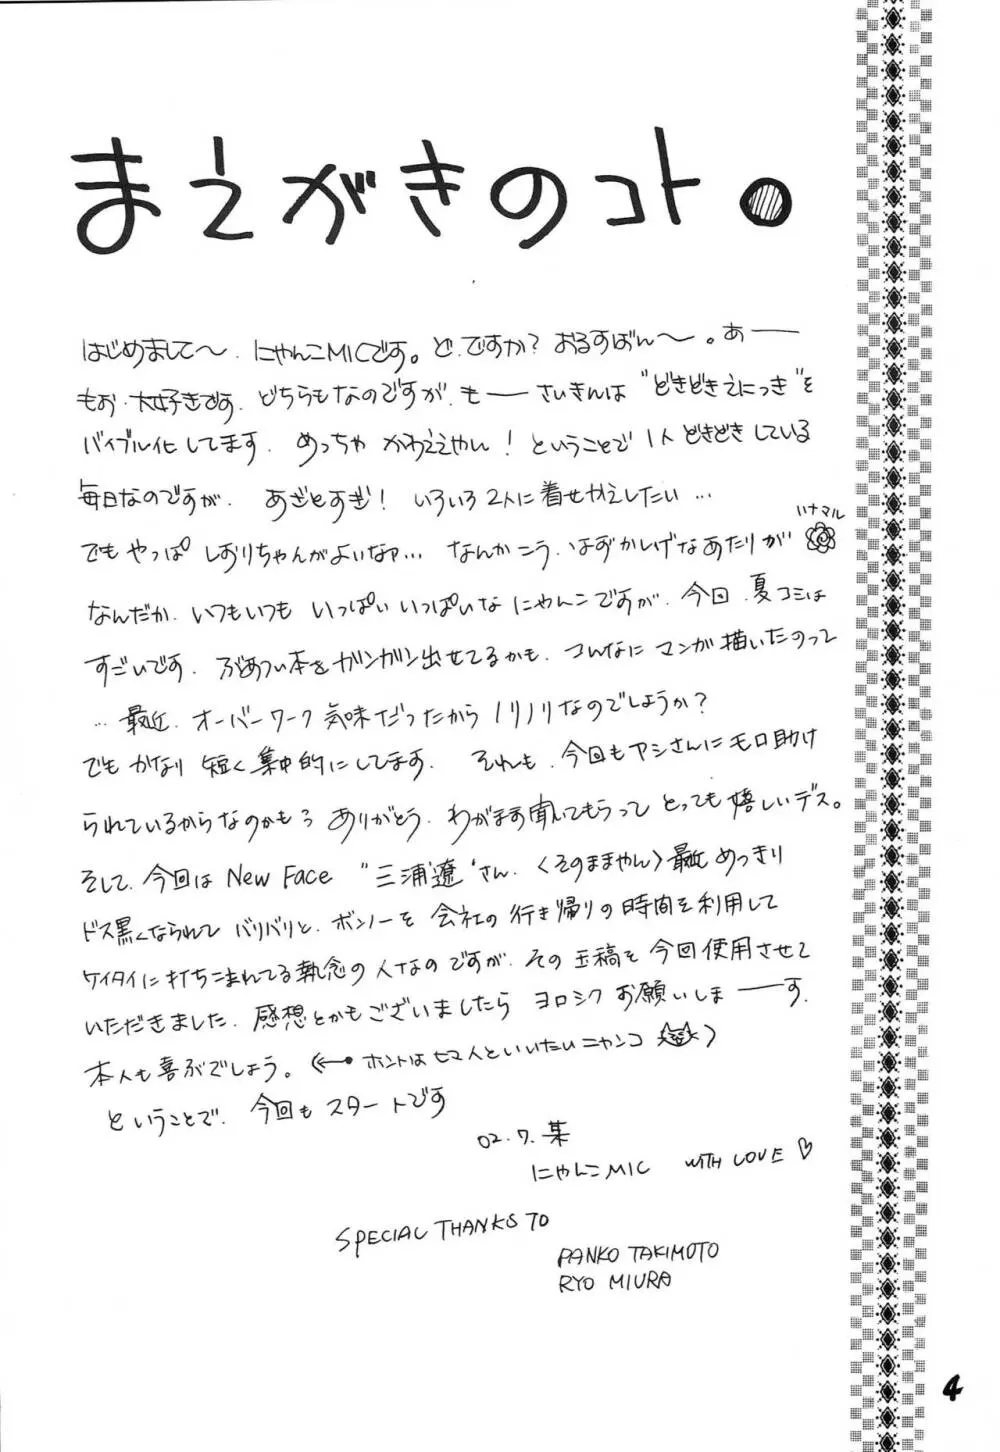 まえがきのコト。
はじめまして〜、にゃんこMICです。ど、ですか?おるすばん〜。あー
もお、大好きです。どちらもなのですが、もーさいきんは"どきどきえにっき"を
バイブル化してます。めっちゃかわええやん!ということで1人どきどきしている
毎日なのですが、あざとすぎ!いろいろ2人に着せかえしたい…
ハナマル
でもやっぱしおりちゃんがよいなァ…なんかこう、はずかしげなあたりが
なんだか、いつもいつもいっぱいいっぱいなにゃんこですが、今回、夏コミは
すごいです。ぶあつい本をガンガン出せてるかも、こんなにマンガ描いたのって
…最近、オーバーワーク気味だったからノリノリなのでしょうか?
でもかなり短く集中的にしてます。それも、今回もアシさんにモロ助け
られているからなのかも?ありがとう、わがまま聞いてもらってとっても嬉しいデス。
そして、今回はNew Face"三浦遼"さん、〈そのままやん〉最近めっきり
ドス黒くなられてバリバリと、ボンノーを会社の行き帰りの時間を利用して
ケイタイに打ちこまれてる執念の人なのですが、その玉稿を今回使用させて
いただきました。感想とかもございましたらヨロシクお願いしまーす。
本人も喜ぶでしょう。(←ホントはセマ人といいたいニャンコ)
ということで、今回もスタートです
02.7.某
にゃんこMIC WITH LOVE♡
SPECIAL THANKS TO
PANKO TAKIMOTO
RYO MIURA
4